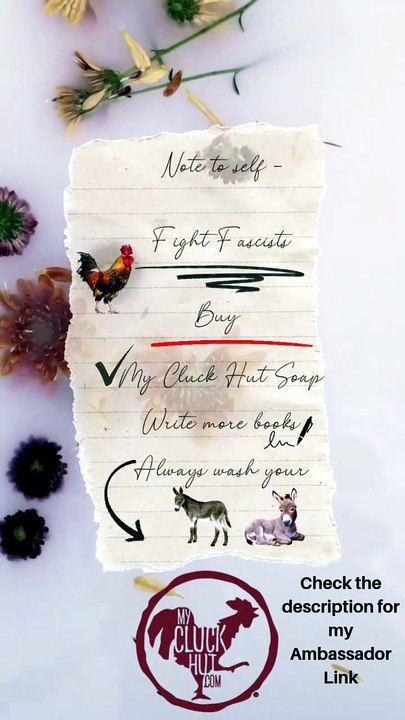 Note to self -
Fight Fascists
Buy
My Cluck Hut Soap
Write more books
Always wash your
MY
CLUCK
HUT
.COM
Check the
description for
my
Ambassador
Link